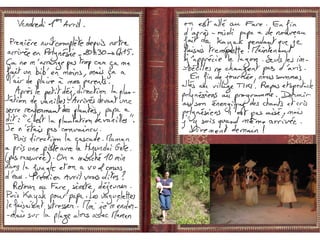 Vendredi 1er Avril.
Première nuit complète depuis notre
arrivée en Polynésie. 20h30 → 6h15.
Ça ne m'arrange pas trop car ça me
fait un bib' en moins, mais ça a
l'air de plaire à mes parents.
Après le petit déj, direction la plan-
tation de vanilles. Arrivés devant une
serre renfermant des plantes, papa a
dit : "c'est la plantation de vanilles".
Je n'étais pas convaincu.
Puis direction la cascade. Maman
a pris une piste avec la Hyundai Getz.
(pas rassurée). On a marché 10 min
dans la jungle et on a vu
d'eau. Premier Avril vous dites ?
Retour au Fare, sieste, déjeuner.
Puis Kayak pour papa. Les vaguelettes
le faisaient stresser. Moi je m'endor-
mais sur la plage alors avec Maman
on est allé au Fare. En fin
d'après-midi papa a de nouveau
fait du Kayak pendant que je
faisais trempette ! Maintenant
j'apprécie le lagon. Seuls les im-
béciles ne changent pas d'avis.
En fin de journée, nous sommes
allés au village TIKI. Repas et spectacle
polynésiens au programme. Dormir
au son énergique des chants et cris
polynésiens n'est pas aisé, mais
j'y suis quand même arrivée.
Vivement demain !